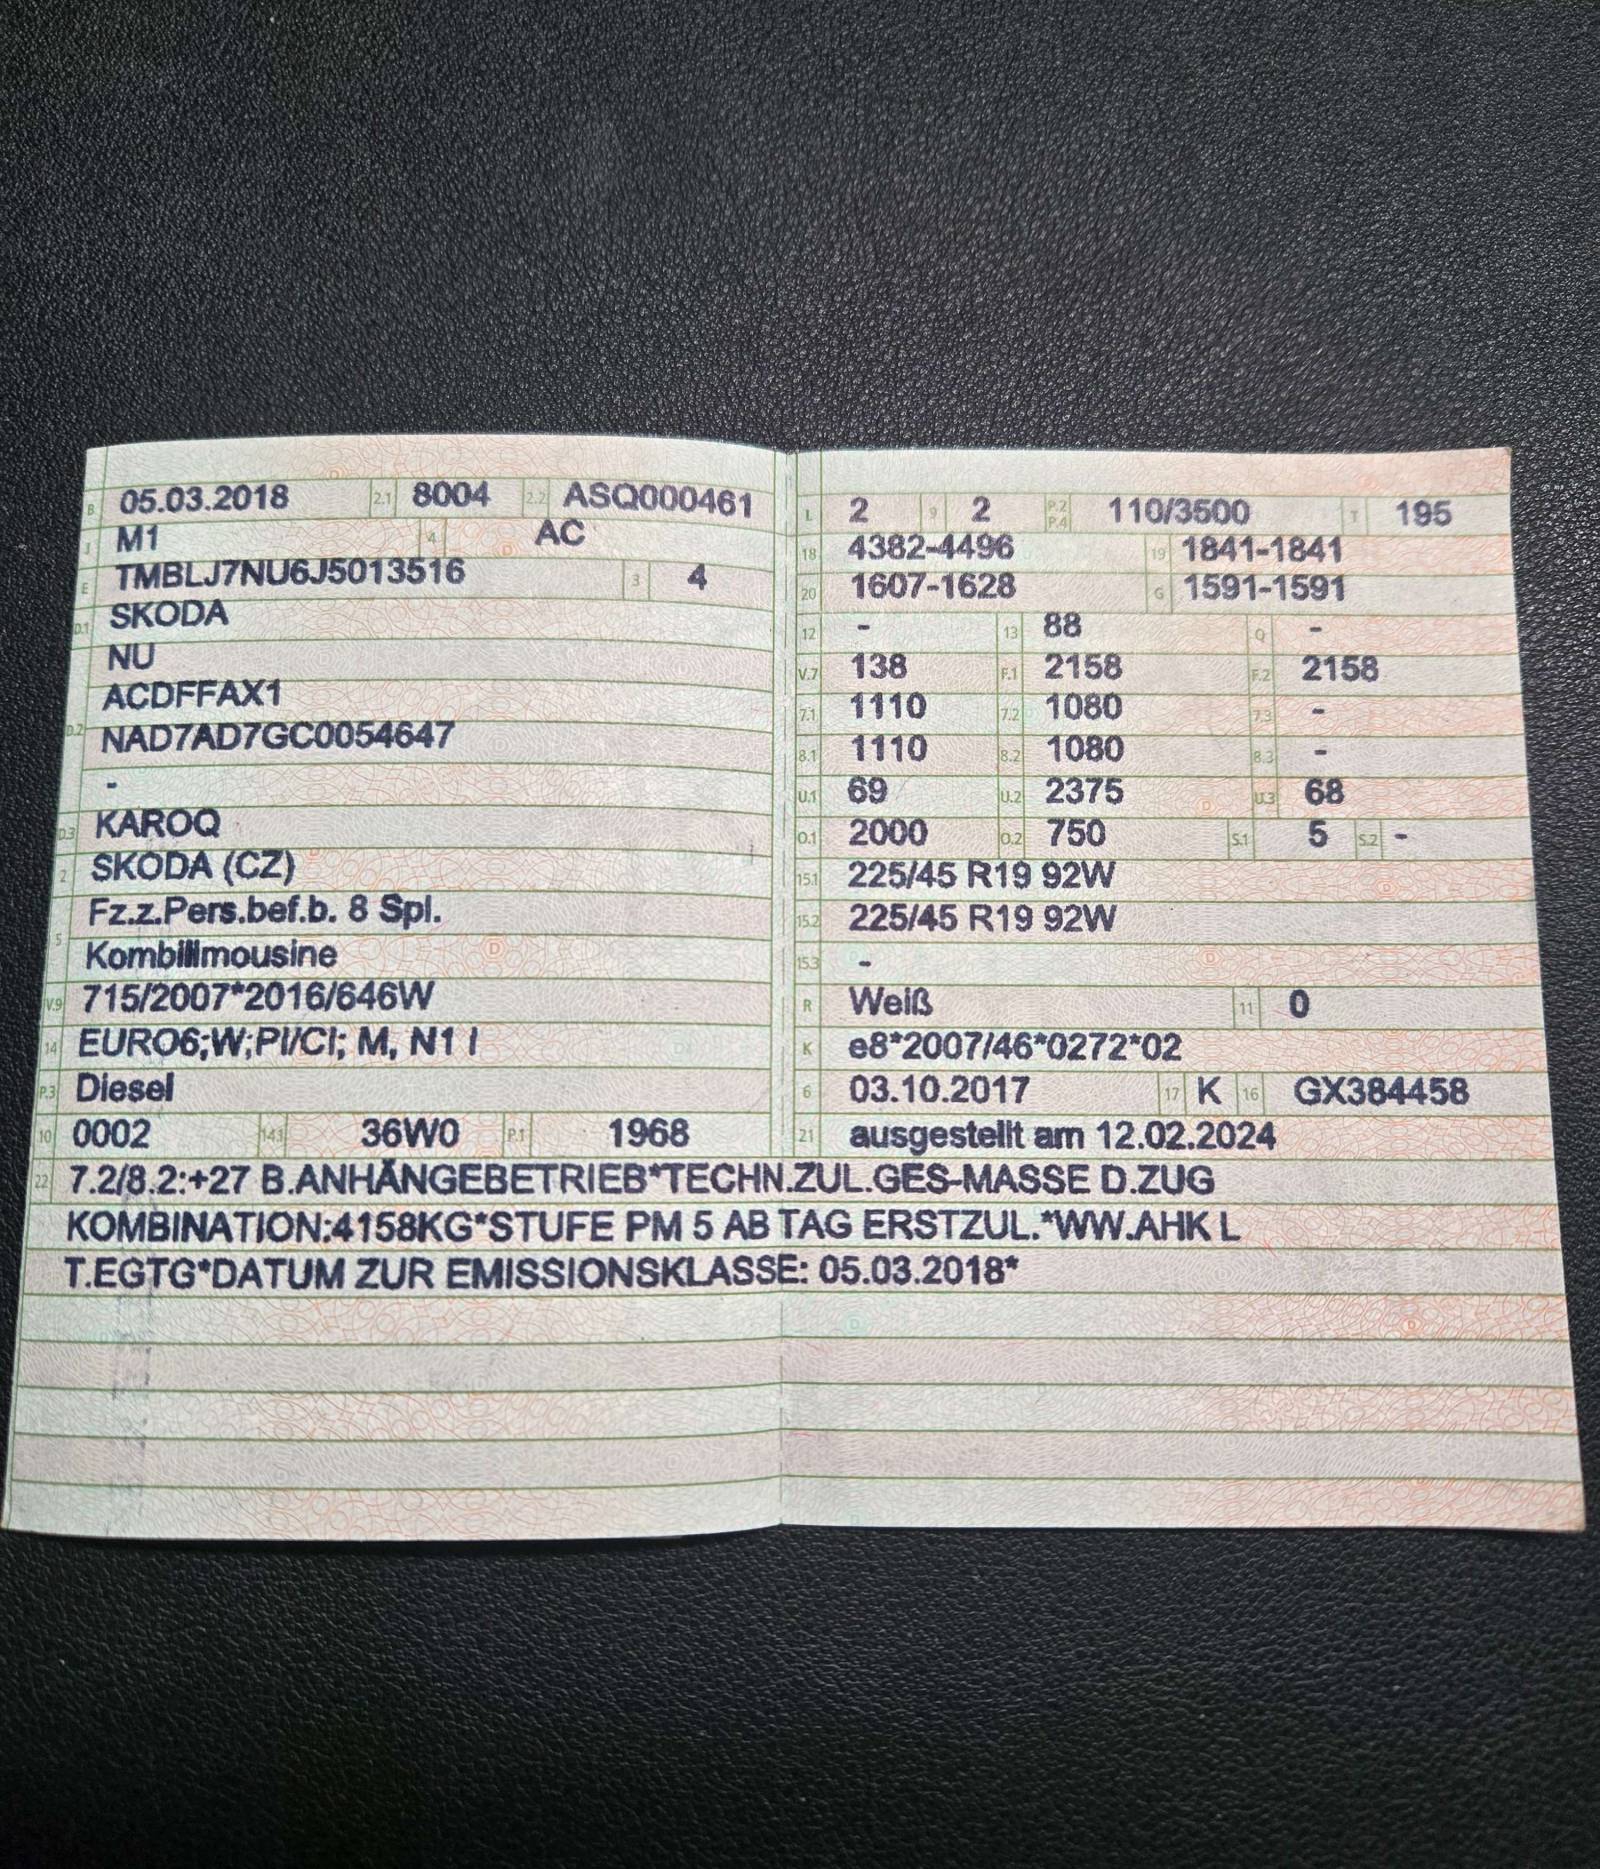 B 05.03.2018 2.1 8004 2.2 ASQ000461
J M1 4 AC
E TMBLJ7NU6J5013516 3 4
D.1 SKODA
NU
ACDFFAX1
D.2 NAD7AD7GC0054647
-
D.3 KAROQ
2 SKODA (CZ)
Fz.z.Pers.bef.b. 8 Spl.
5 Kombilimousine
V.9 715/2007*2016/646W
14 EURO6;W;PI/CI; M, N1 I
P.3 Diesel
10 0002 14.1 36W0 P.1 1968
L 2 9 2 P.2 P.4 110/3500 T 195
18 4382-4496 19 1841-1841
20 1607-1628 G 1591-1591
12 - 13 88 Q -
V.7 138 F.1 2158 F.2 2158
7.1 1110 7.2 1080 7.3 -
8.1 1110 8.2 1080 8.3 -
U.1 69 U.2 2375 U.3 68
O.1 2000 O.2 750 S.1 5 S.2 -
15.1 225/45 R19 92W
15.2 225/45 R19 92W
15.3 -
R Weiß 11 0
K e8*2007/46*0272*02
6 03.10.2017 17 K 16 GX384458
21 ausgestellt am 12.02.2024
22 7.2/8.2:+27 B.ANHÄNGEBETRIEB*TECHN.ZUL.GES-MASSE D.ZUG
KOMBINATION:4158KG*STUFE PM 5 AB TAG ERSTZUL.*WW.AHK L
T.EGTG*DATUM ZUR EMISSIONSKLASSE: 05.03.2018*